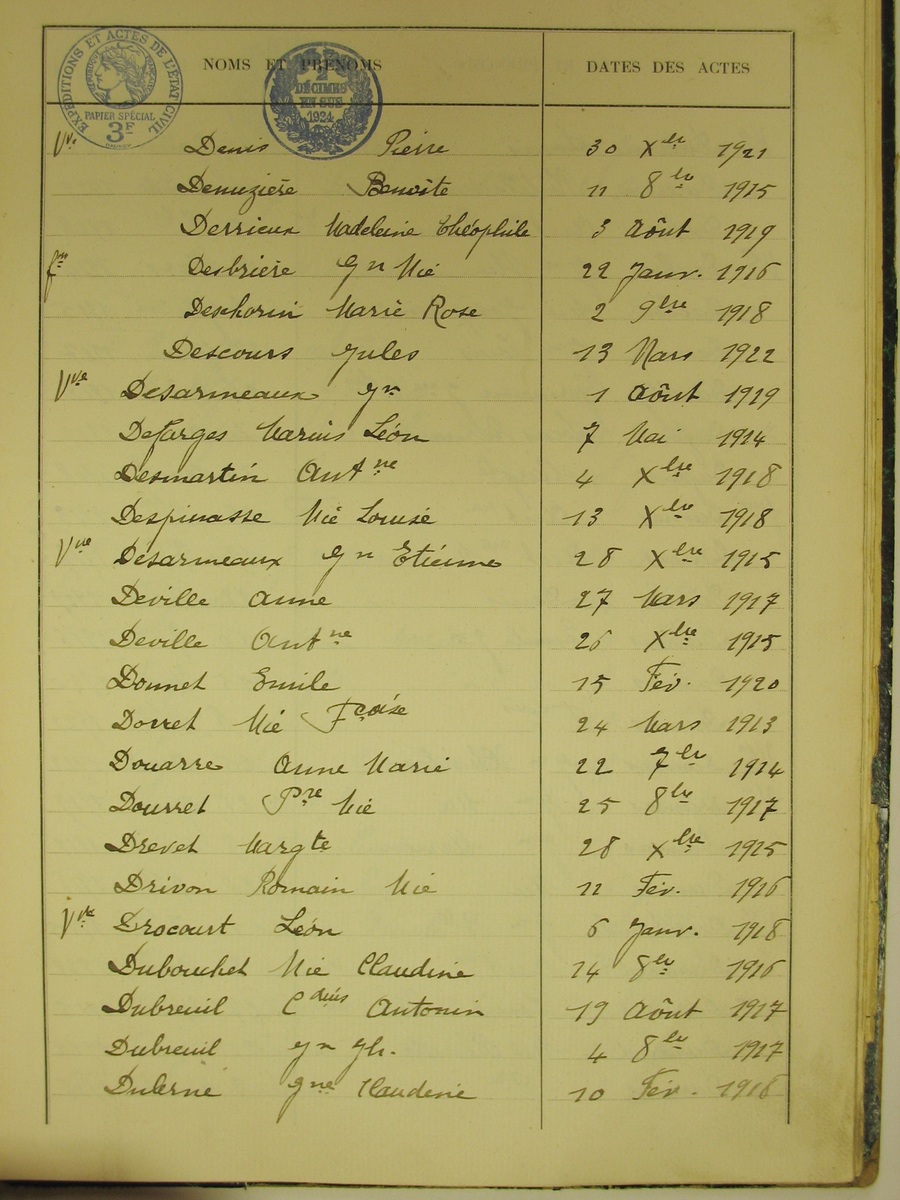 EXPÉDITIONS ET ACTES DE L'ÉTAT CIVIL
RÉPUBLIQUE FRANÇAISE
PAPIER SPÉCIAL
3F
2
DÉCIMES
EN SUS
1924
NOMS ET PRÉNOMS DATES DES ACTES
Vve Denis Pierre 30 Xbre 1921
Demuzière Benoîte 11 8bre 1915
Derrieux Madeleine Théophile 3 Août 1919
fme Desbrière Jn Mie 22 Janv. 1916
Deschorin Marie Rose 2 9bre 1918
Descours Jules 13 Mars 1922
Vve Desarmeaux Jn 1 Août 1919
Defarges Marius Léon 7 Mai 1914
Desmartin Antne 4 Xbre 1918
Despinasse Mie Louise 13 Xbre 1918
Vve Desarmeaux Jn Etienne 28 Xbre 1915
Deville Anne 27 Mars 1917
Deville Antne 26 Xbre 1915
Donnet Emile 15 Fév. 1920
Dorret Mie Fçoise 24 Mars 1913
Douarre Anne Marie 22 7bre 1914
Dourret Pre Mie 25 8bre 1917
Drevet Margte 28 Xbre 1915
Drivon Romain Mie 12 Fév. 1916
Vve Drocourt Léon 6 Janv. 1918
Dubouchet Mie Claudine 14 8bre 1916
Dubreuil Cdius Antonin 19 Août 1917
Dubreuil Jn Jh. 4 8bre 1917
Jne Claudine 10 Fév. 1916